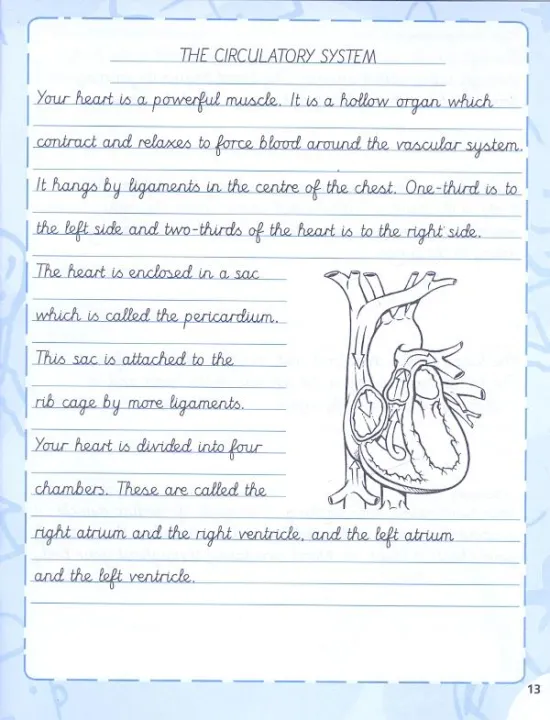 THE CIRCULATORY SYSTEM
Your heart is a powerful muscle. It is a hollow organ which
contract and relaxes to force blood around the vascular system.
It hangs by ligaments in the centre of the chest. One-third is to
the left side and two-thirds of the heart is to the right side.
The heart is enclosed in a sac
which is called the pericardium.
This sac is attached to the
rib cage by more ligaments.
Your heart is divided into four
chambers. These are called the
right atrium and the right ventricle, and the left atrium
and the left ventricle.
13